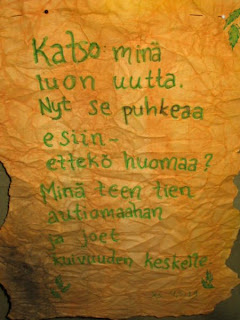 Katso: minä
luon uutta.
Nyt se puhkeaa
esiin-
ettekö huomaa?
Minä teen tien
autiomaahan
ja joet
kuivuuden keskelle